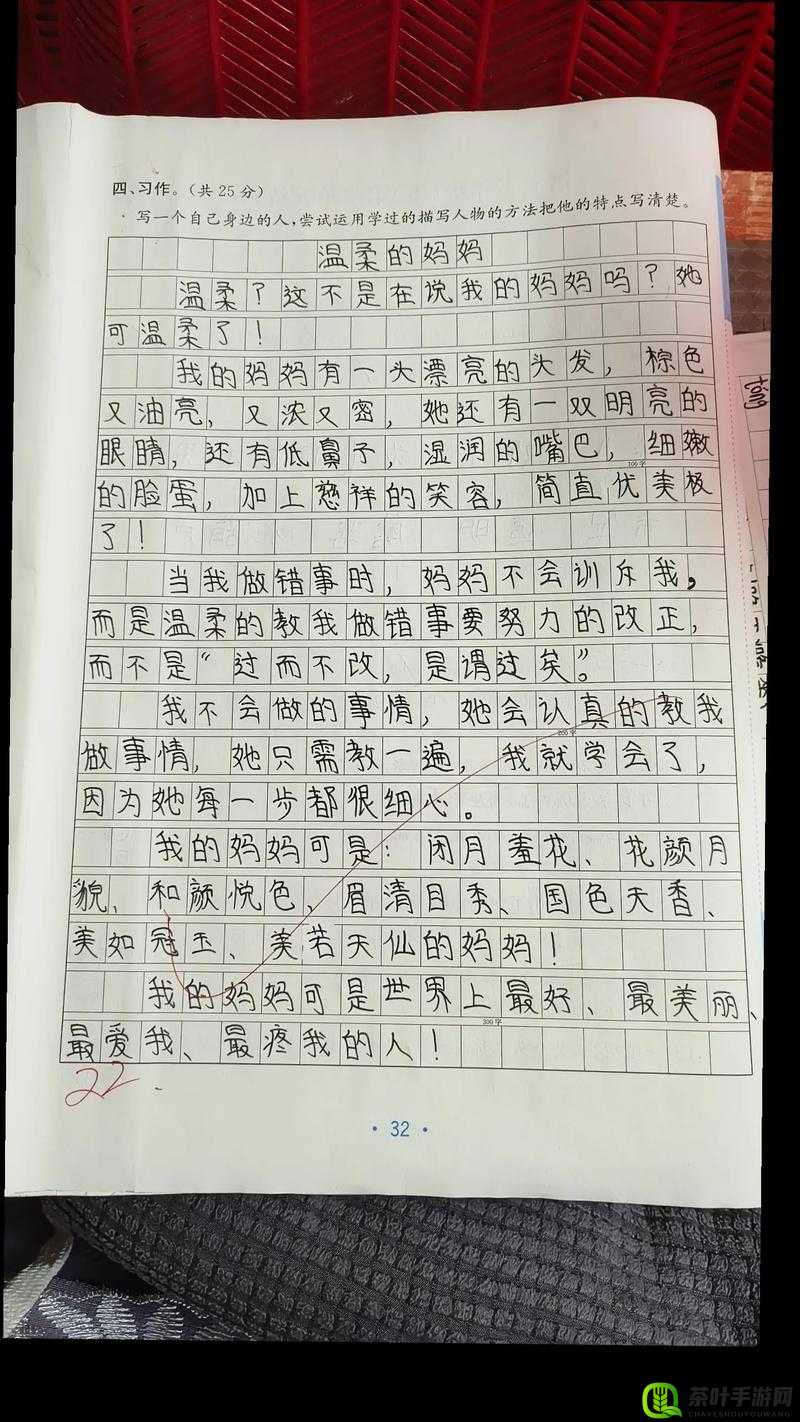 四、习作。（共 25 分）
写一个自己身边的人，尝试运用学过的描写人物的方法把他的特点写清楚。
温柔的妈妈
温柔？这不是在说我的妈妈吗？她
可温柔了！
我的妈妈有一头漂亮的头发，棕色
又油亮，又浓又密，她还有一双明亮的
眼睛，还有低鼻子，湿润的嘴巴，细嫩
100字
的脸蛋，加上慈祥的笑容，简直优美极
了！
当我做错事时，妈妈不会训斥我，
而是温柔的教我做错事要努力的改正，
而不是“过而不改，是谓过矣”。
我不会做的事情，她会认真的教我
200字
做事情，她只需教一遍，我就学会了，
因为她每一步都很细心。
我的妈妈可是：闭月羞花、花颜月
貌、和颜悦色、眉清目秀、国色天香、
美如冠玉、美若天仙的妈妈！
我的妈妈可是世界上最好、最美丽、
300字
最爱我、最疼我的人！
22
· 32 ·
茶叶手游网
CHAYESHOUYOUWANG